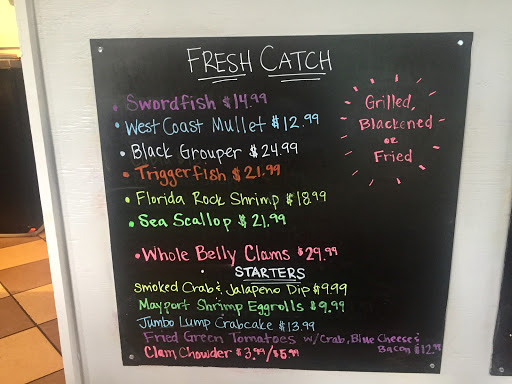 FRESH CATCH
• Swordfish $14.99
• West Coast Mullet $12.99
• Black Grouper $24.99
• Triggerfish $21.99
• Florida Rock Shrimp $18.99
• Sea Scallop $21.99
• Whole Belly Clams $29.99
Grilled,
Blackened
or
Fried
• STARTERS
Smoked Crab & Jalapeno Dip $9.99
Mayport Shrimp Eggrolls $9.99
Jumbo Lump Crabcake $13.99
Fried Green Tomatoes w/Crab, Blue Cheese &
Bacon $12.99
Clam Chowder $3.99/$5.99